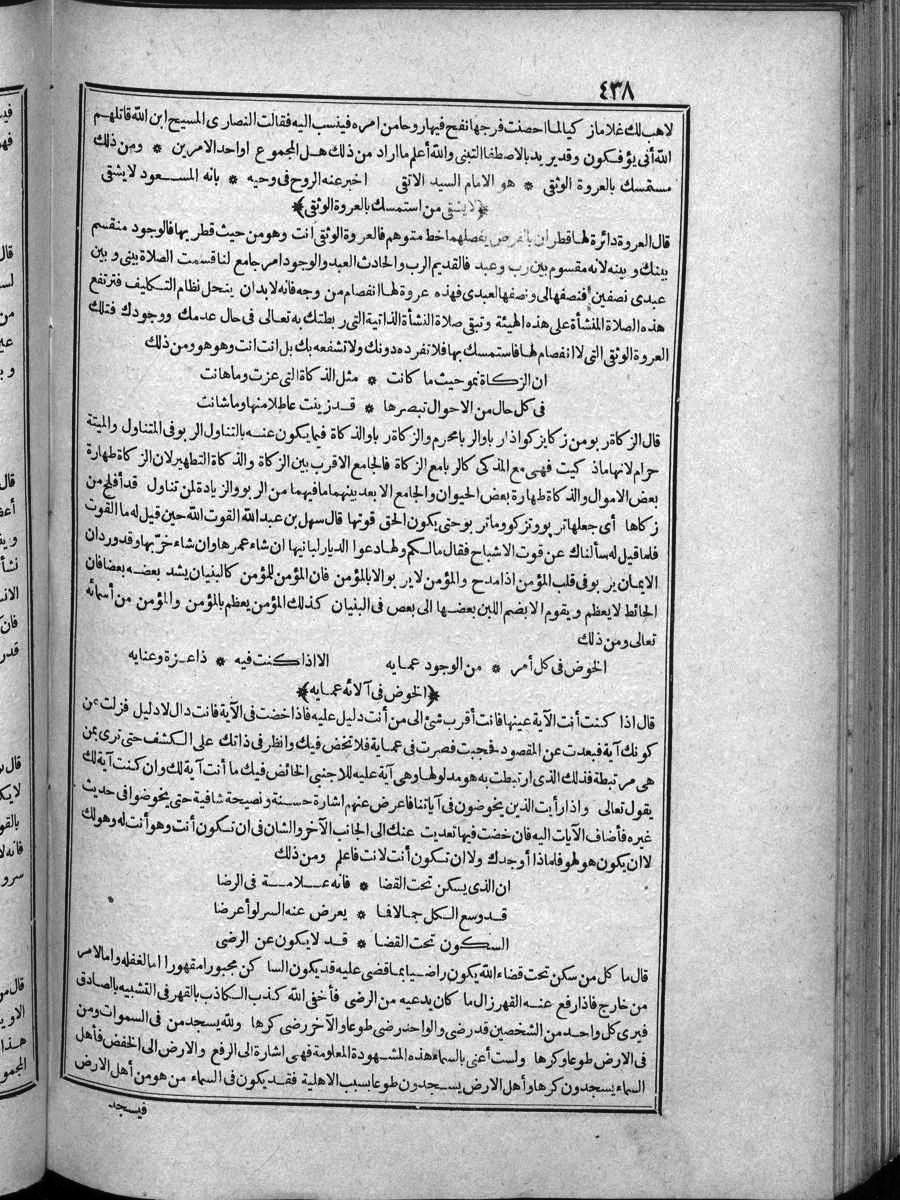 ٤٣٨
لاهب لك غلاما زكيا لما احصنت فرجها نفخ فيها روحا من امره فينسب اليه فقالت النصارى المسيح ابن الله قاتلهم
الله أنى يؤفكون وقد يريد بالاصطفا التبنى والله أعلم ما اراد من ذلك هل المجموع او احد الامرين * ومن ذلك
مستمسك بالعروة الوثقى * هو الامام السيد الاتقى اخبر عنه الروح فى وحيه * بانه المسعود لا يشقى
﴿لا يشقى من استمسك بالعروة الوثقى﴾
قال العروة دائرة لها قطران بالفرض يفصلهما خط متوهم فالعروة الوثقى انت وهو من حيث قطر بها فالوجود منقسم
بينك وبينه لانه مقسوم بين رب وعبد فالقديم الرب والحادث العبد والوجود امر جامع لنا قسمت الصلاة بينى وبين
عبدى نصفين فنصفها لى ونصفها لعبدى فهذه عروة لها انفصام من وجه فانه لا بد ان ينحل نظام التكليف فترتفع
هذه الصلاة المنشأة على هذه الهيئة وتبقى صلاة النشأة الذاتية التى ربطتك به تعالى فى حال عدمك ووجودك فتلك
العروة الوثقى التى لا انفصام لها فاستمسك بها فلا تفرده دونك ولا تشفعه بك بل انت انت وهو هو ومن ذلك
ان الزكاة نمو حيث ما كانت * مثل الذكاة التى عزت وما هانت
فى كل حال من الاحوال تبصرها * قد زينت عاطلا منها وما شانت
قال الزكاة ربو من زكا يزكو اذا ربا والربا محرم والزكاة ربا والذكاة فيما يكون عنه بالتناول الربو فى المتناول والميتة
حرام لانها ما ذكيت فهى مع المذكى كالربا مع الزكاة فالجامع الاقرب بين الزكاة والذكاة التطهير لان الزكاة طهارة
بعض الاموال والذكاة طهارة بعض الحيوان والجامع الابعد بينهما ما فيهما من الربو والزيادة لمن تناول قد أفلح من
زكاها أى جعلها تربو وتزكو وما تربو حتى يكون الحق قوتها قال سهل بن عبد الله القوت الله حين قيل له ما القوت
فلما قيل له سألناك عن قوت الاشباح فقال ما لكم ولها دعوا الديار لبانيها ان شاء عمرها وان شاء خربها وقد ورد ان
الايمان يربو فى قلب المؤمن اذا مدح والمؤمن لا يربو الا بالمؤمن فان المؤمن للمؤمن كالبنيان يشد بعضه بعضا فان
الحائط لا يعظم ويقوم الا بضم اللبن بعضها الى بعض فى البنيان كذلك المؤمن يعظم بالمؤمن والمؤمن من أسمائه
تعالى ومن ذلك
الخوض فى كل أمر * من الوجود عمايه الا اذا كنت فيه * ذا عزة وعنايه
﴿الخوض فى آلائه عمايه﴾
قال اذا كنت أنت الآية عينها فانت أقرب شئ الى من أنت دليل عليه فاذا خضت فى الآية فانت دال لا دليل فزلت عن
كونك آية فبعدت عن المقصود فحجبت فصرت فى عماية فلا تخض فيك وانظر فى ذاتك على الكشف حتى ترى بمن
هى مرتبطة فذلك الذى ارتبطت به هو مدلولها وهى آية عليه للاجنبى الخائض فيك ما أنت آية لك وان كنت آية لك
يقول تعالى واذا رأيت الذين يخوضون فى آياتنا فاعرض عنهم اشارة حسنة ونصيحة شافية حتى يخوضوا فى حديث
غيره فأضاف الآيات اليه فان خضت فيها تعديت عنك الى الجانب الآخر والشان فى ان تكون أنت وهو أنت له وهو لك
لا ان يكون هو لهو فلماذا أوجدك ولا ان تكون أنت لانت فاعلم ومن ذلك
ان الذى يسكن تحت القضا * فانه علامة فى الرضا
قد وسع الكل جمالا فا * يعرض عنه السر لو أعرضا
السكون تحت القضا * قد لا يكون عن الرضى
قال ما كل من سكن تحت قضاء الله يكون راضيا بما قضى عليه قد يكون الساكن مجبورا مقهورا اما لغفله واما لامر
من خارج فاذا رفع عنه القهر زال ما كان يدعيه من الرضى فأخفى الله كذب الكاذب بالقهر فى التشبيه بالصادق
فيرى كل واحد من الشخصين قد رضى والواحد رضى طوعا والآخر رضى كرها ولله يسجد من فى السموات ومن
فى الارض طوعا وكرها ولست أعنى بالسماء هذه المشهودة المعلومة فهى اشارة الى الرفع والارض الى الخفض فأهل
السماء يسجدون كرها وأهل الارض يسجدون طوعا بسبب الاهلية فقد يكون فى السماء من هو من أهل الارض
فيسجد